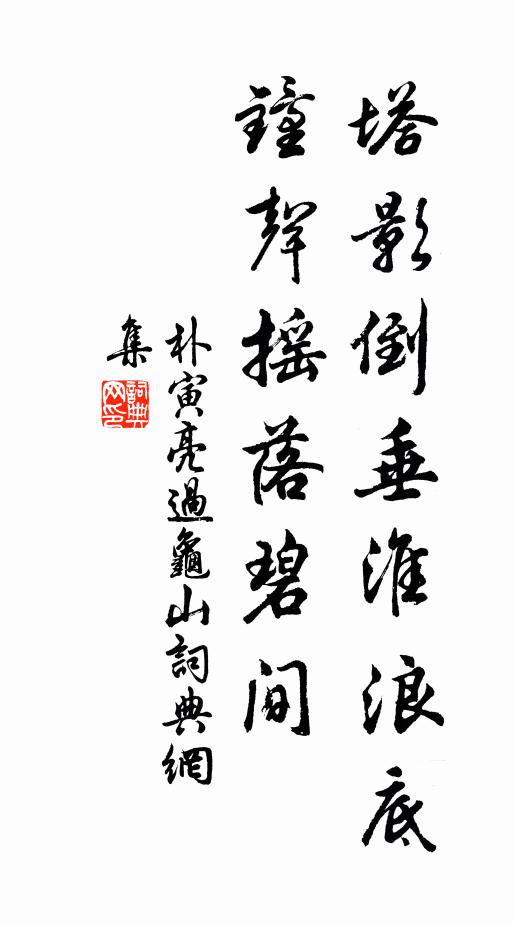 塔影倒垂淮浪底
鐘聲摇落碧間
朴寅亮過龜山詞典網
集
詞典網印